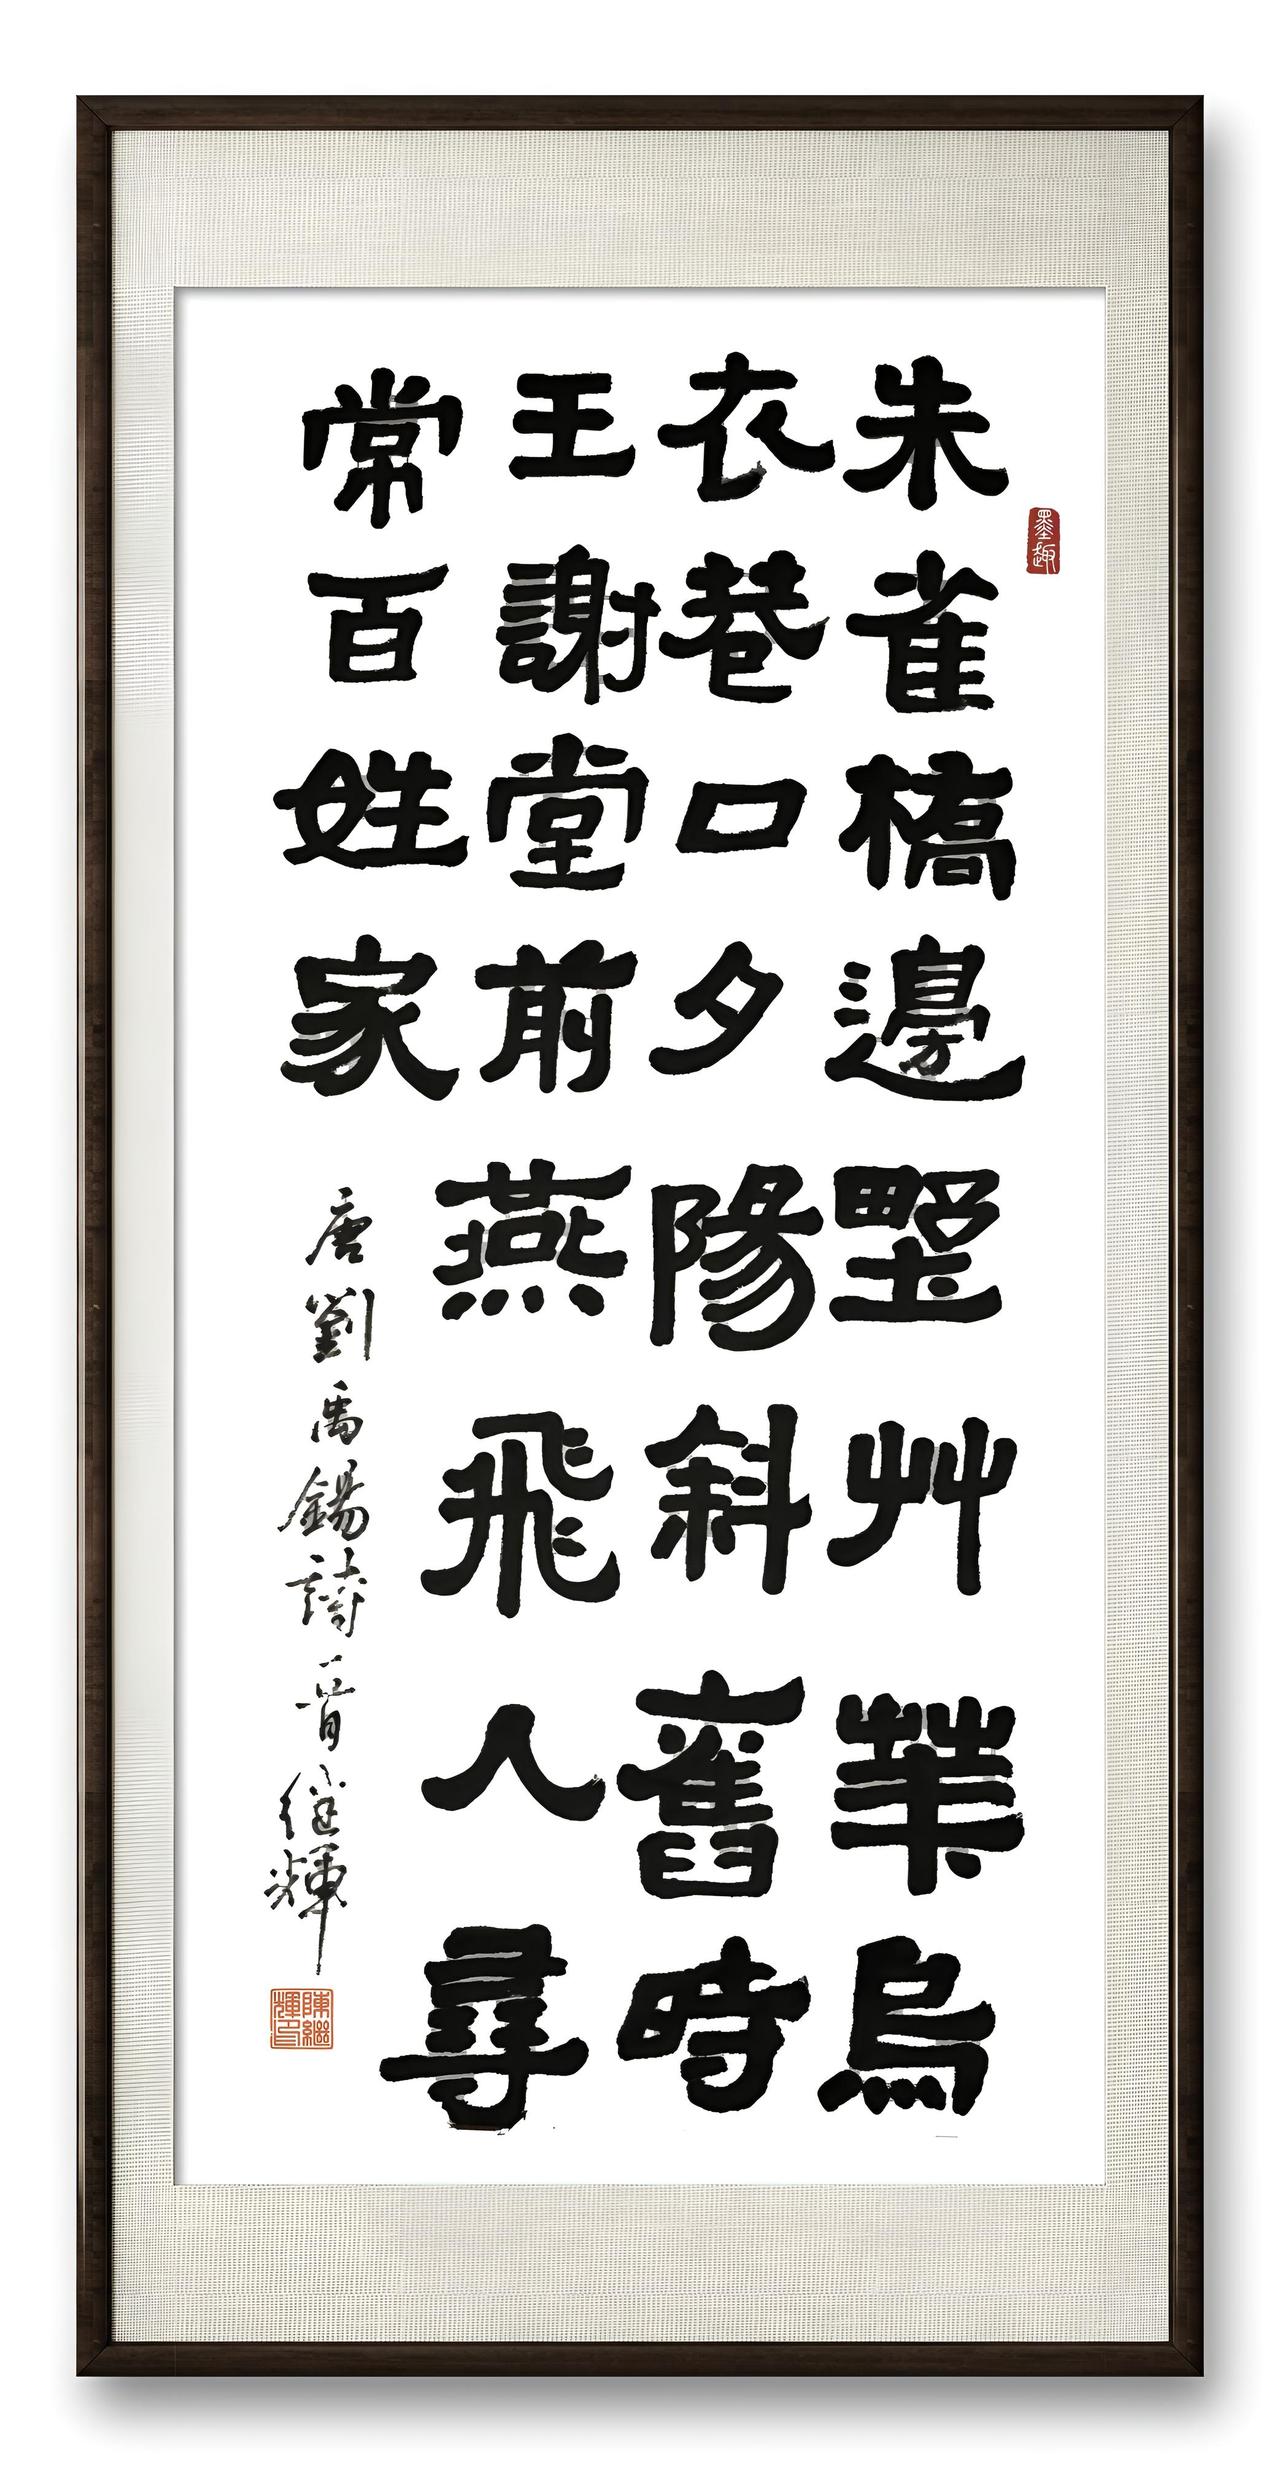 朱雀橋邊壄艸華烏
衣巷口夕陽斜舊時
王謝堂前燕飛人尋
常百姓家
唐劉禹錫詩一首继輝
墨趣
陳繼輝印